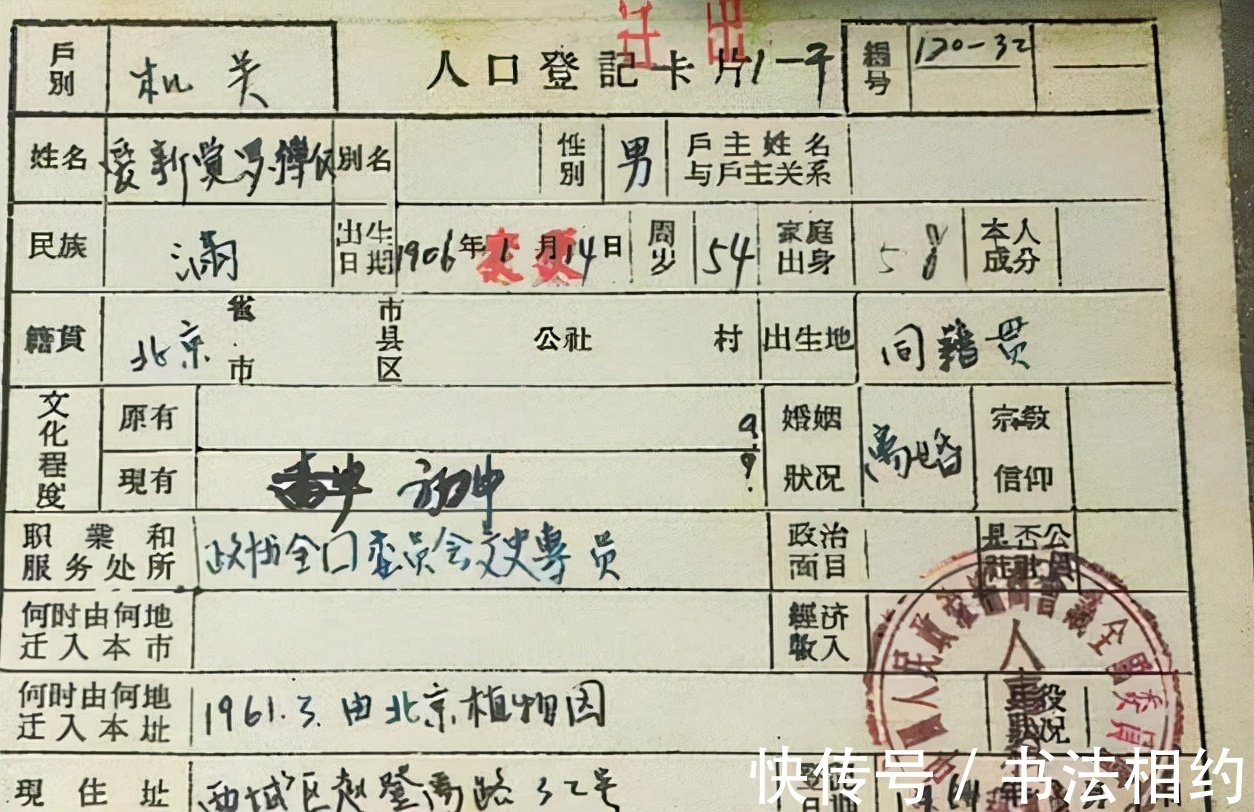 迁出
戶別 机关 人口登記卡片 1—7 編号 120-32
姓名 爱新覚罗溥仪 別名 性別 男 戶主姓名与戶主关系
民族 满 出生日期 1906年1月14日 变更 周岁 54 家庭出身 58 本人成分
籍貫 北京 省市 市县区 公社 村 出生地 同籍贯
文化程度 原有 婚姻狀况 离婚 宗教信仰
現有 初中
职業和服务处所 政协全口委员会文史專员 政治面目 是否公社社員
何时由何地迁入本市 經济收入
何时由何地迁入本址 1961.3.由北京植物园
現住址 西城区赵登禹路32号
人民政治協商會議全國委員會
人事
快传号 / 书法相约